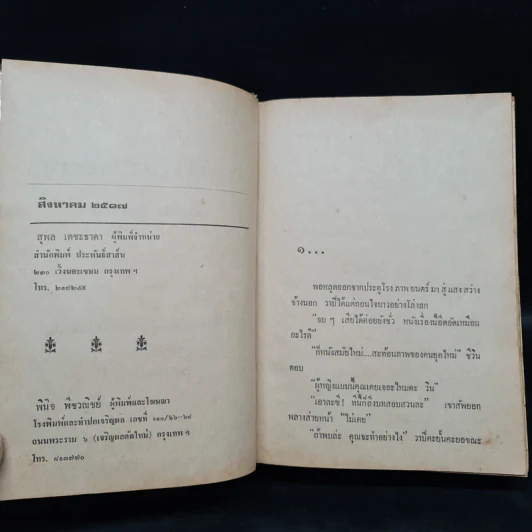 สิงหาคม ๒๕๑๗
สุพล เตชะธาดา ผู้พิมพ์จำหน่าย
สำนักพิมพ์ ประพันธ์สาส์น
๒๓๐ เวิ้งนครเขษม กรุงเทพ ฯ
โทร.
พินิจ พีชวณิชย์ ผู้พิมพ์และโฆษณา
โรงพิมพ์และทำปกเจริญผล เลขที่
ถนนพระราม ๖ (เจริญผลตัดใหม่) กรุงเทพ ฯ
โทร. ๘๑๓๗๗๐
๑...
พอหลุดออกจากประตูโรงภาพยนตร์มาสู่แสงสว่าง
ข้างนอก วาบีได้แต่ถอนใจยาวอย่างโล่งอก
"จบ ๆ เสียได้ค่อยยังชั่ว หนังเรื่องนี้อึดอัดเหมือน
อะไรดี"
"ก็หนังสมัยใหม่....สะท้อนภาพของคนยุคใหม่" ชีวิน
ตอบ
"ผู้หญิงแบบนี้คุณเคยเจอะไหมคะ วิน"
"เอาละซี! ที่นี้ก็ถึงบทสอบสวนละ" เขาสัพยอก
พลางส่ายหน้า "ไม่เคย"
"ถ้าพบล่ะ คุณจะทำอย่างไร" วาบีคะยั้นคะยอขณะ